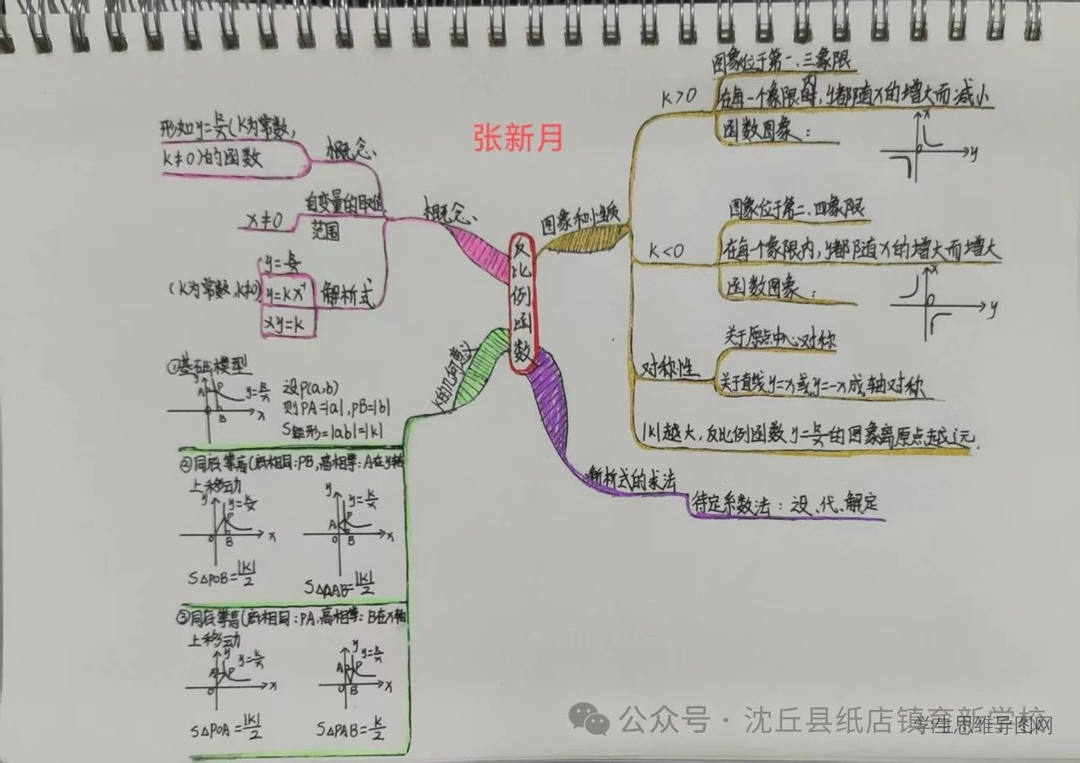 张新月
反比例函数
概念
概念
形如y=k/x(k为常数,
k≠0)的函数
自变量的取值
范围
x≠0
解析式
y=k/x
y=kx⁻¹
xy=k
(k为常数,k≠0)
图象和性质
k>0
图象位于第一、三象限
在每一个象限内,y都随x的增大而减小
函数图象:
x
y
k<0
图象位于第二、四象限
在每个象限内,y都随x的增大而增大
函数图象:
x
y
对称性
关于原点中心对称
关于直线y=x或y=-x成轴对称
|k|越大,反比例函数y=k/x的图象离原点越远.
解析式的求法
待定系数法:设、代、解定
k的几何意义
①基础模型
y A P y=k/x
O B x
设P(a,b)
则PA=|a|,PB=|b|
S矩形=|ab|=|k|
②同底等高(底相同:PB,高相等:A在y轴
上移动
y y=k/x P
O B x
S△POB=|k|/2
y y=k/x A P
O B x
S△PAB=|k|/2
③同底等高(底相同:PA,高相等:B在x轴
上移动
y y=k/x A P
O x
S△POA=|k|/2
y y=k/x A P
O B x
S△PAB=k/2
公众号·沈丘县纸店镇育新学校
学生思维导图网